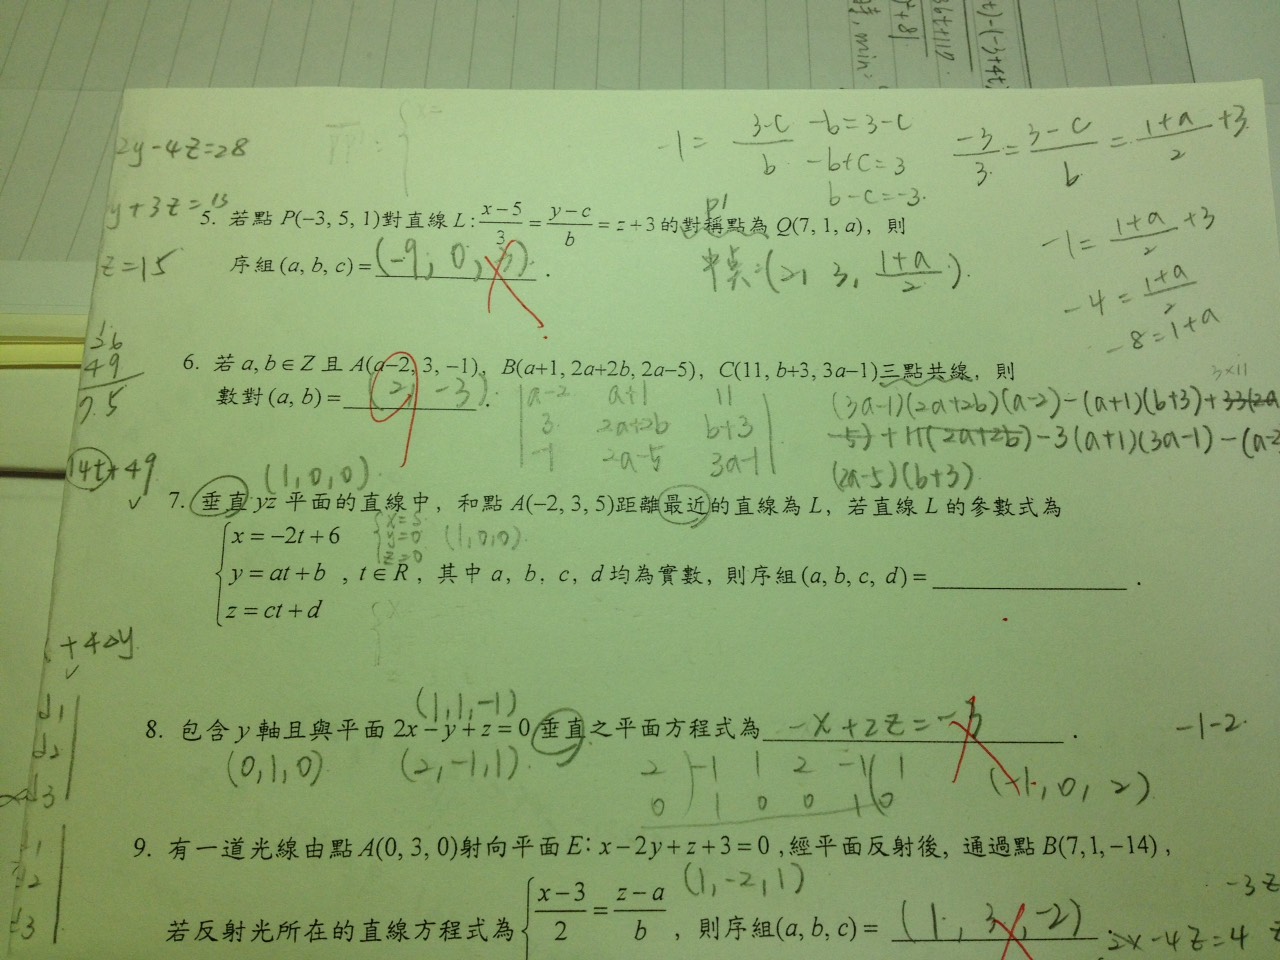 -1 = (3-c)/b
-b = 3-c
-b+c = 3
b-c = -3.
-3/3 = (3-c)/b = (1+a)/2 +3
-1 = (1+a)/2 +3
-4 = (1+a)/2
-8 = 1+a
2y-4z=28
y+3z=15
z=15
5. 若點 P(−3, 5, 1)對直線 L : (x−5)/3 = (y−c)/b = z+3 的對稱點為 Q(7, 1, a)，則
序組 (a, b, c) = (-9, 0, 3) .
中点:(2, 3, (1+a)/2).
26
49
75
6. 若 a, b ∈ Z 且 A(a−2, 3, −1)，B(a+1, 2a+2b, 2a−5)，C(11, b+3, 3a−1)三點共線，則
數對 (a, b) = (2, -3) .
a-2 a+1 11
3 2a+2b b+3
-1 2a-5 3a-1
3×11
(3a-1)(2a+2b)(a-2)-(a+1)(b+3)+33(2a
-5)+11(2a+2b)-3(a+1)(3a-1)-(a-2
(2a-5)(b+3)
14t+49
(1,0,0)
7. 垂直 yz 平面的直線中，和點 A(−2, 3, 5)距離最近的直線為 L，若直線 L 的參數式為
x = −2t + 6
y = at + b ，t ∈ R，其中 a，b，c，d 均為實數，則序組 (a, b, c, d) = .
z = ct + d
y=0
z=0
(1,0,0)
+4Δy
(1,1,-1)
8. 包含 y 軸且與平面 2x − y + z = 0 垂直之平面方程式為 -x+2z=-3 .
-1-2.
(0,1,0)
(2,-1,1)
2 -1 1 2 -1 1
0 1 0 0 1 0
(-1,0,2)
9. 有一道光線由點 A(0, 3, 0)射向平面 E: x − 2y + z + 3 = 0，經平面反射後，通過點 B(7, 1, −14)，
(1,-2,1)
若反射光所在的直線方程式為 (x−3)/2 = (z−a)/b ，則序組(a, b, c) = (1, 3, -2) .
-3z
2x-4z=4